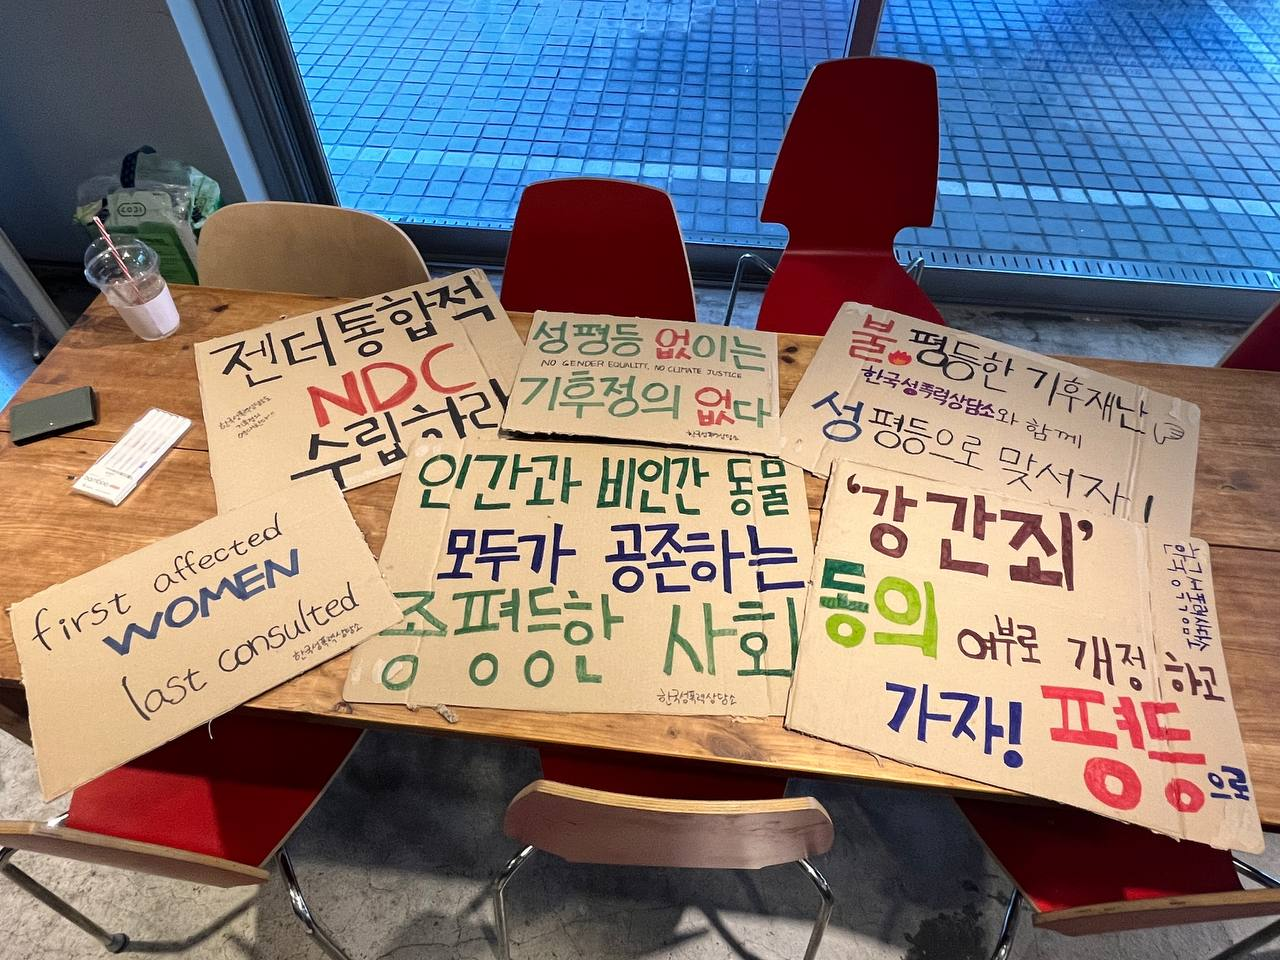 젠더통합적
NDC
수립하라
성평등 없이는
NO GENDER EQUALITY, NO CLIMATE JUSTICE
기후정의 없다
한국성폭력상담소
불평등한 기후재난
한국성폭력상담소와 함께
성평등으로 맞서자!
first affected
WOMEN
last consulted
한국성폭력상담소
인간과 비인간 동물
모두가 공존하는
종평등한 사회
한국성폭력상담소
'강간죄'
동의 여부로 개정하고
가자! 평등으로